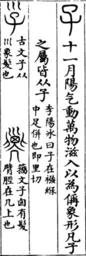 十一月陽气動萬物滋入以為偁象形凡子
之屬皆从子
李陽冰曰子在襁緥
中足併也即里切
古文子从
巛象髮也
籒文子囟有髮
臂脛在几上也